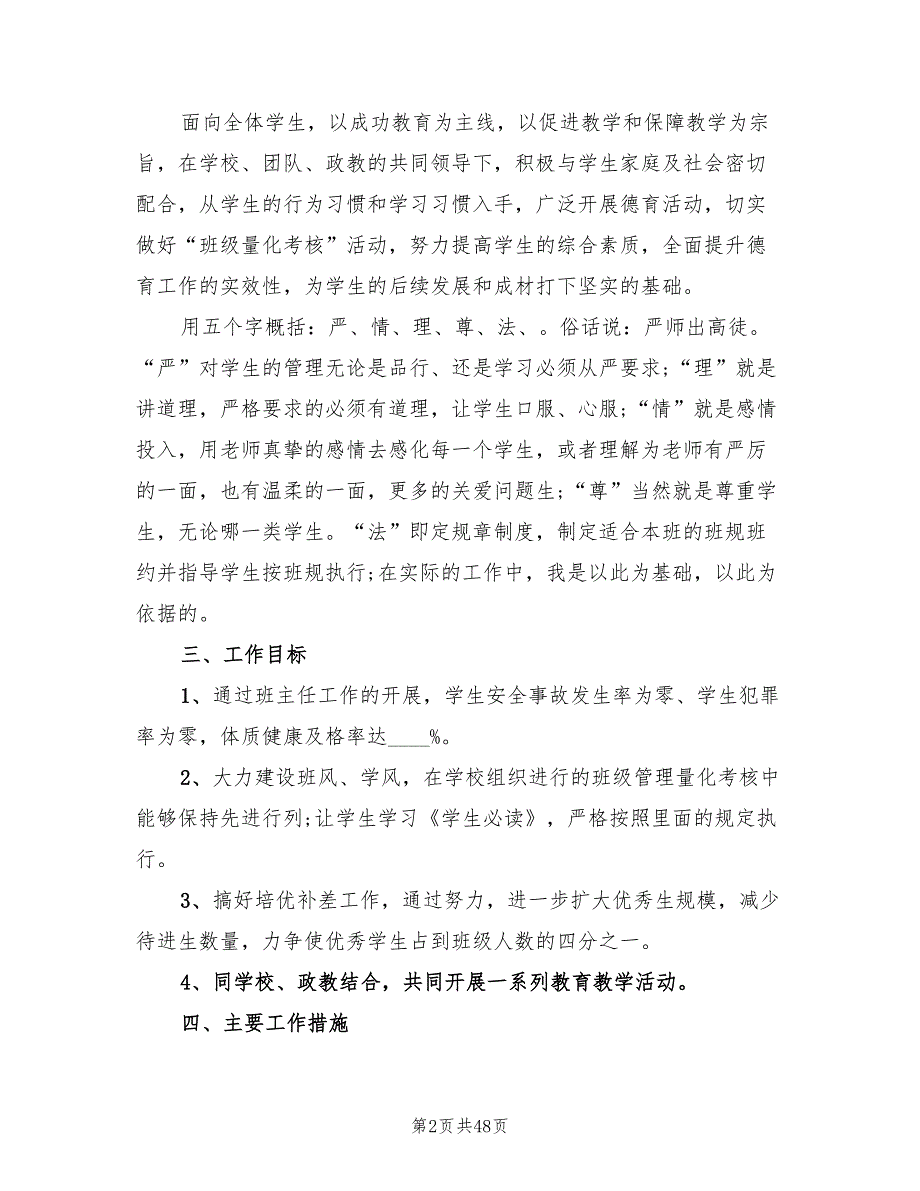 面向全体学生，以成功教育为主线，以促进教学和保障教学为宗
旨，在学校、团队、政教的共同领导下，积极与学生家庭及社会密切
配合，从学生的行为习惯和学习习惯入手，广泛开展德育活动，切实
做好“班级量化考核”活动，努力提高学生的综合素质，全面提升德
育工作的实效性，为学生的后续发展和成材打下坚实的基础。
用五个字概括：严、情、理、尊、法、。俗话说：严师出高徒。
“严”对学生的管理无论是品行、还是学习必须从严要求;“理”就是
讲道理，严格要求的必须有道理，让学生口服、心服;“情”就是感情
投入，用老师真挚的感情去感化每一个学生，或者理解为老师有严厉
的一面，也有温柔的一面，更多的关爱问题生;“尊”当然就是尊重学
生，无论哪一类学生。“法”即定规章制度，制定适合本班的班规班
约并指导学生按班规执行;在实际的工作中，我是以此为基础，以此为
依据的。
三、工作目标
1、通过班主任工作的开展，学生安全事故发生率为零、学生犯罪
率为零，体质健康及格率达____%。
2、大力建设班风、学风，在学校组织进行的班级管理量化考核中
能够保持先进行列;让学生学习《学生必读》，严格按照里面的规定执
行。
3、搞好培优补差工作，通过努力，进一步扩大优秀生规模，减少
待进生数量，力争使优秀学生占到班级人数的四分之一。
4、同学校、政教结合，共同开展一系列教育教学活动。
四、主要工作措施
第2页共48页